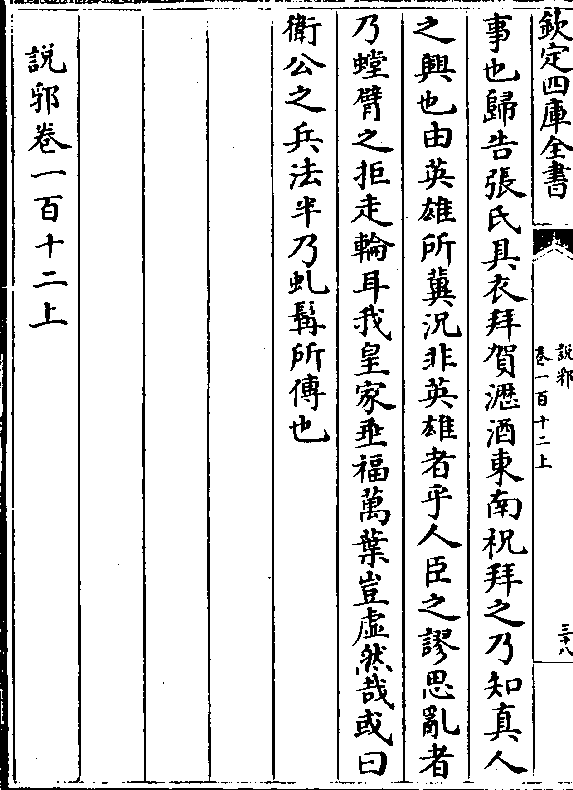 欽定四庫全書
說郛
卷一百十二上
三十八
事也歸告張氏具衣拜賀瀝酒東南祝拜之乃知真人
之興也由英雄所冀況非英雄者乎人臣之謬思亂者
乃螳臂之拒走輪耳我皇家垂福萬葉豈虛然哉或曰
衛公之兵法半乃虬髯所傳也
說郛卷一百十二上